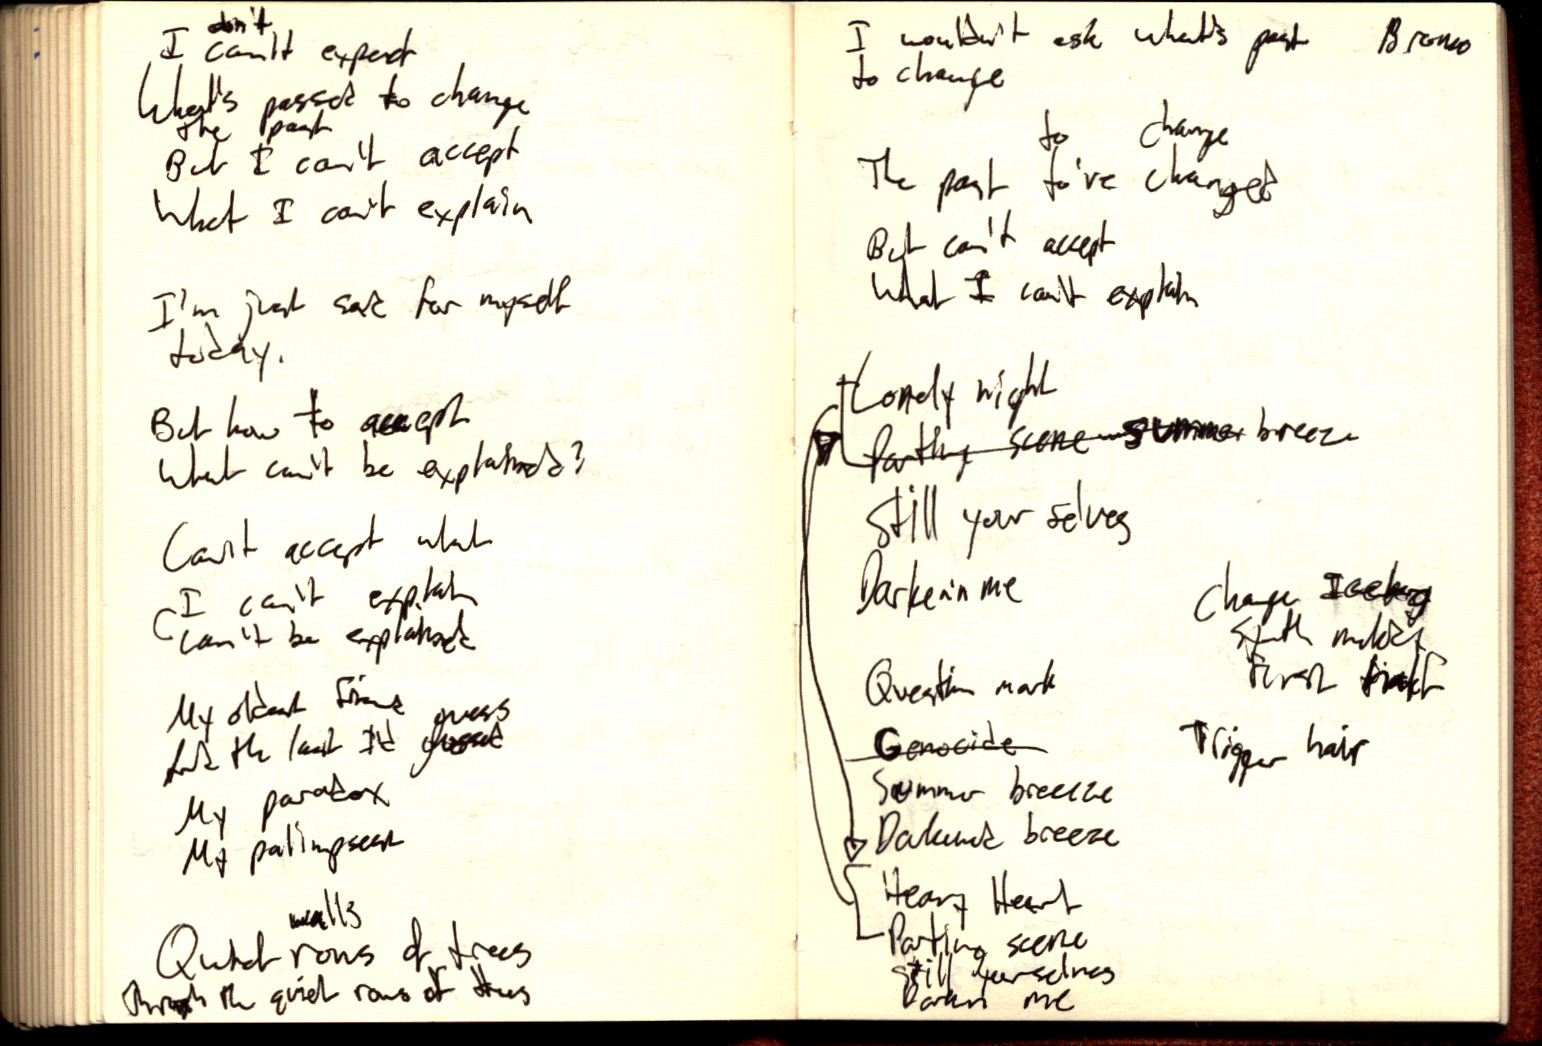 don't
I can't expect
What's passed to change
the past
But I can't accept
What I can't explain
I'm just sad for myself
today.
But how to accept
What can't be explained?
Can't accept what
I can't explain
can't be explained
My oldest guess
the last I'd guessed
My paradox
My palimpsest
walls
Quiet rows of trees
Through the quiet rows of trees
I wouldn't ask what's past
to change
Bronco
to change
The past to've changed
But can't accept
What I can't explain
Lonely night
Parting scene summer breeze
Still your selves
Darken in me
Question mark
Genocide
Summer breeze
Darkened breeze
Heavy Heart
Parting scene
Still yourselves
Darken me
Change Iceberg
synth
first
Trigger hair